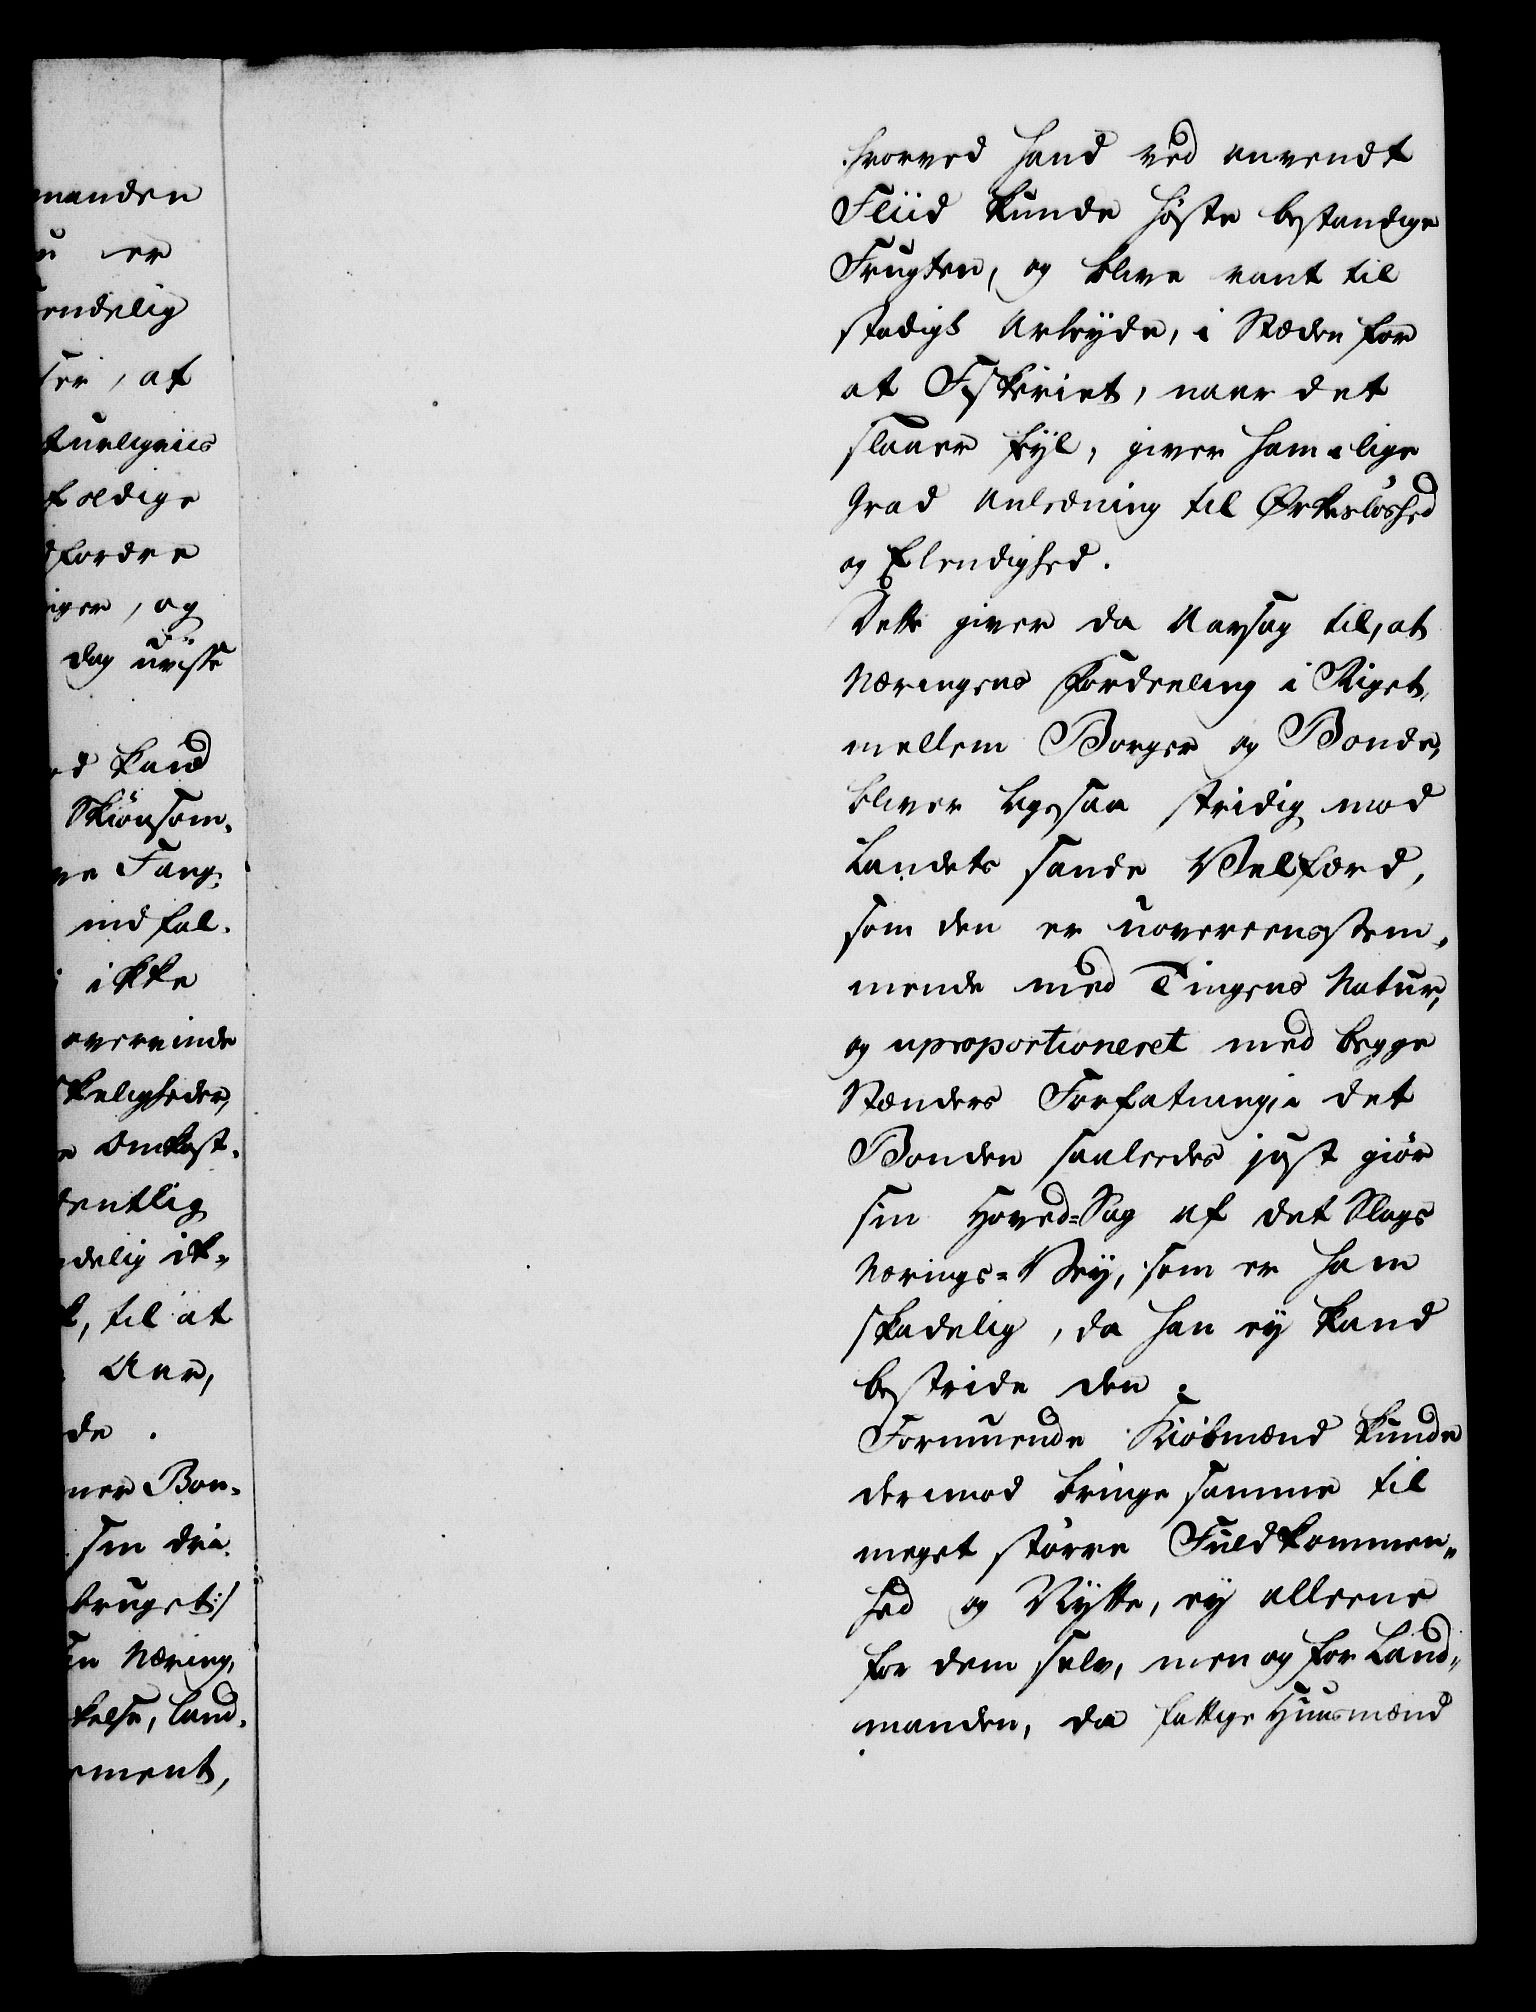 manden
er
endelig
, at
turligviis
foldige
fordre
, og
dag uvisse
kand
Skiønsom„
Fang„
ind fal„
ikke
overvinde
keligheder,
Omkost„
dentlig
delig ik„
, til at
Aar,
de .
ner Bon„
sin
bruget:/
Næring,
kelse, land„
ement,
hvorved hand ved anvendt
Fliid kunde høste bestandige
Frugter, og blive vant til
stadigt Arbeyde, i Stæden for
at Fiskeriet, naar det
slaaer feyl, giver ham i lige
Grad Anledning til Ørkesløshed
og Elendighed.
Dette giver da Aarsag til, at
Næringens Fordeeling i Riget,
mellem Borger og Bonde,
bliver ligesaa stridig mod
Landets sande Velfærd,
som den er uovereensstem„
mende med Tingens Natur,
og uproportioneret med begge
Stænders Forfatning, i det
Bonden saaledes just giør
sin Hoved-Sag af det Slags
Nærings-Vey, som er ham
skadelig, da han ey kand
bestride den.
Formuende Kiøbmænd kunde
derimod bringe samme til
meget større Fuldkommen„
hed og Nytte, ey alleene
for dem selv, men og for Land„
manden, da fattige Huusmænd